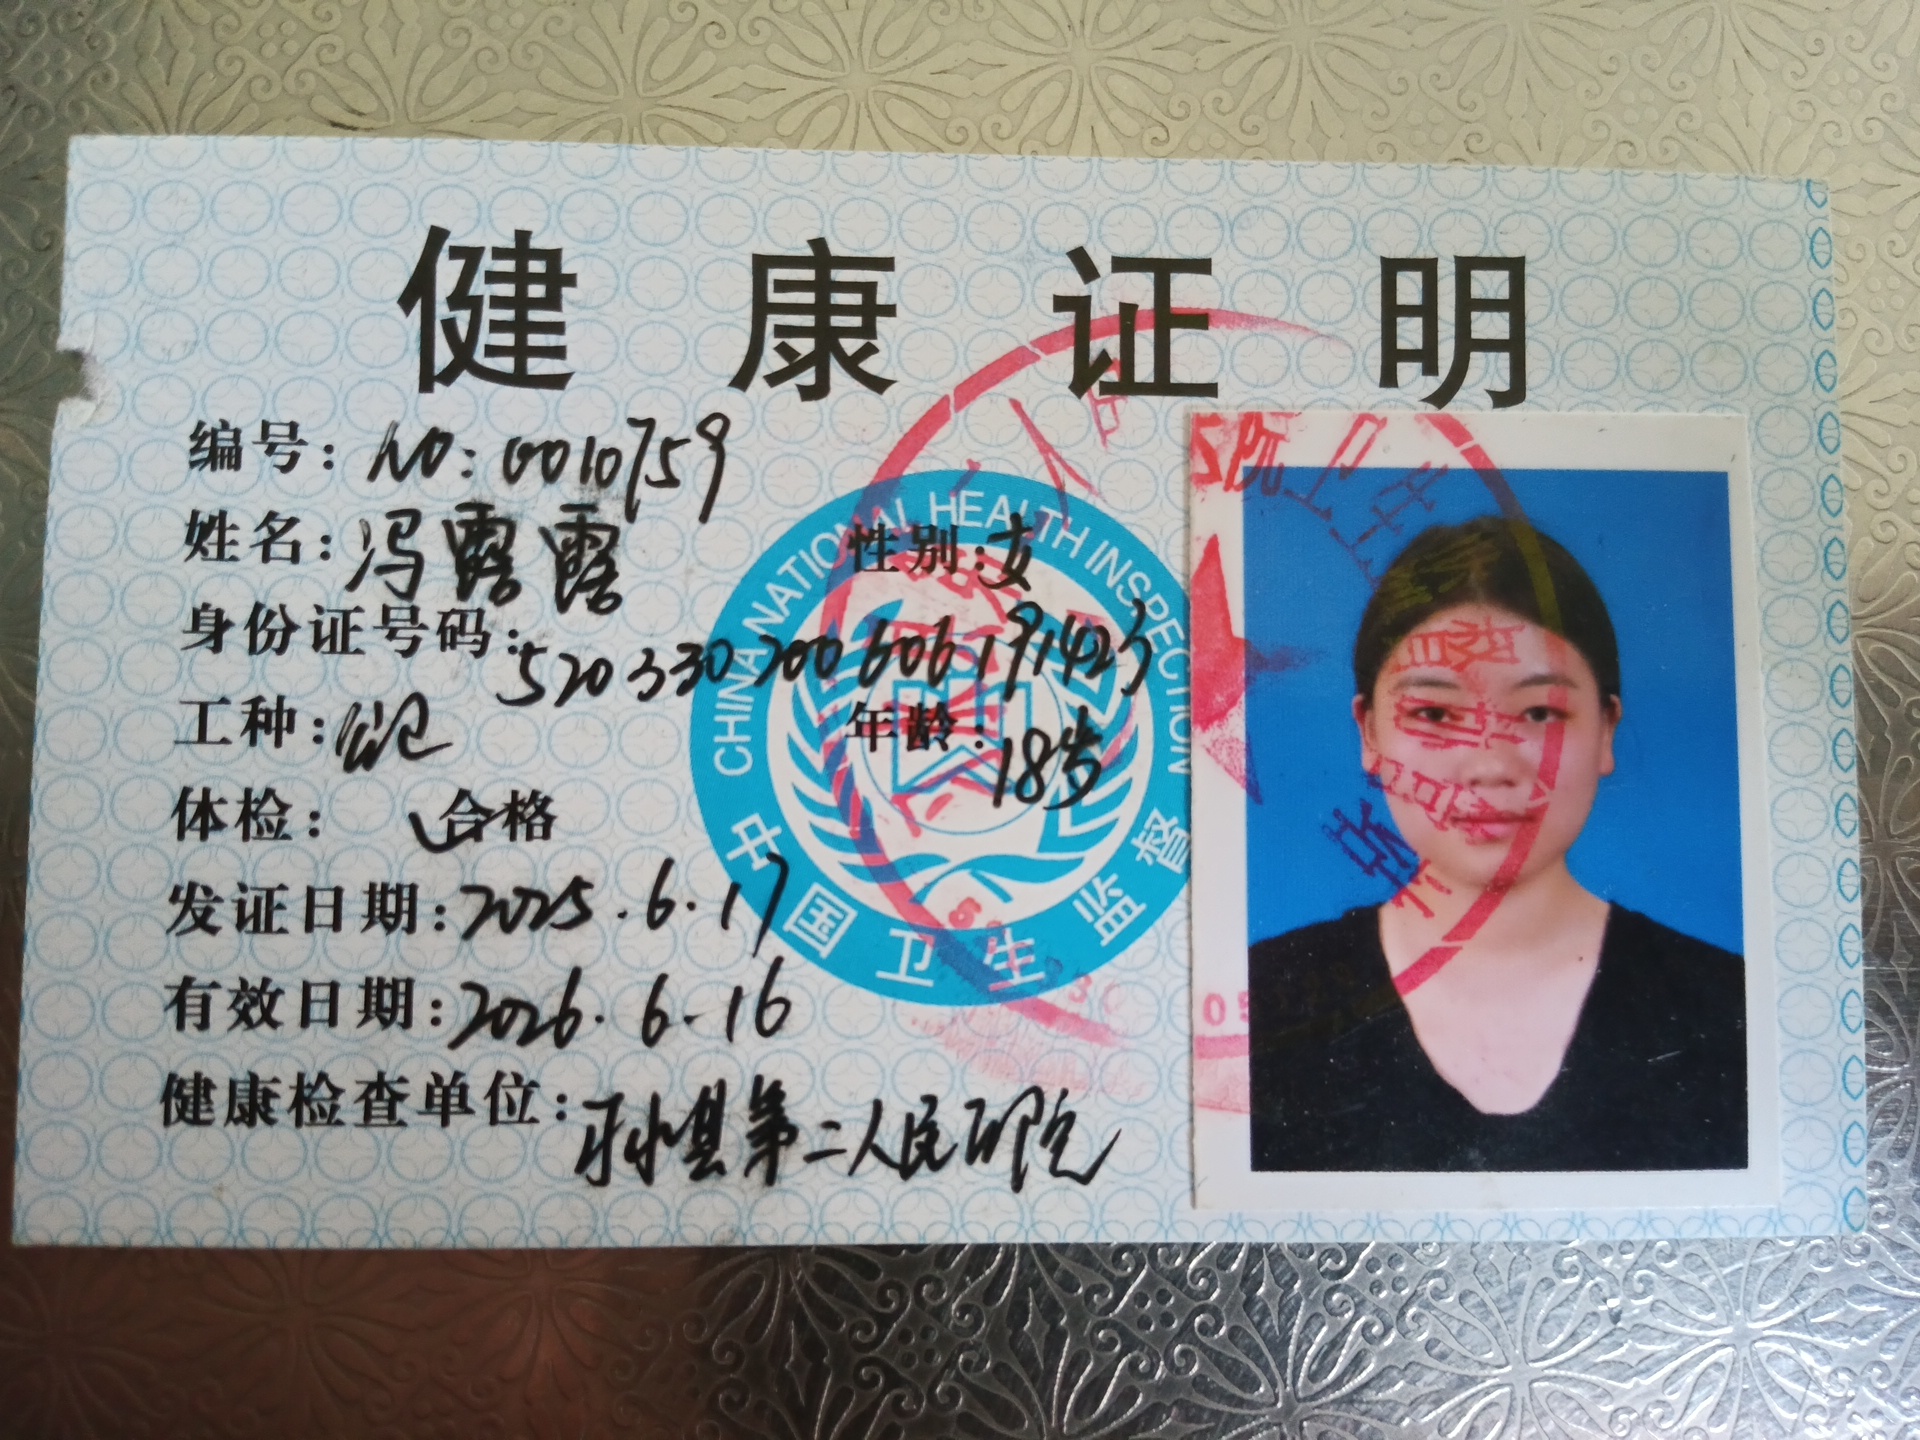 健康证明
编号: NO: 0010759
姓名: 冯露露 性别: 女
身份证号码: 520330200606191423
工种: 年龄: 18岁
体检: 合格
发证日期: 2025.6.17
有效日期: 2026.6.16
健康检查单位: 习水县第二人民医院
CHINA NATIONAL HEALTH INSPECTION
中国卫生监督